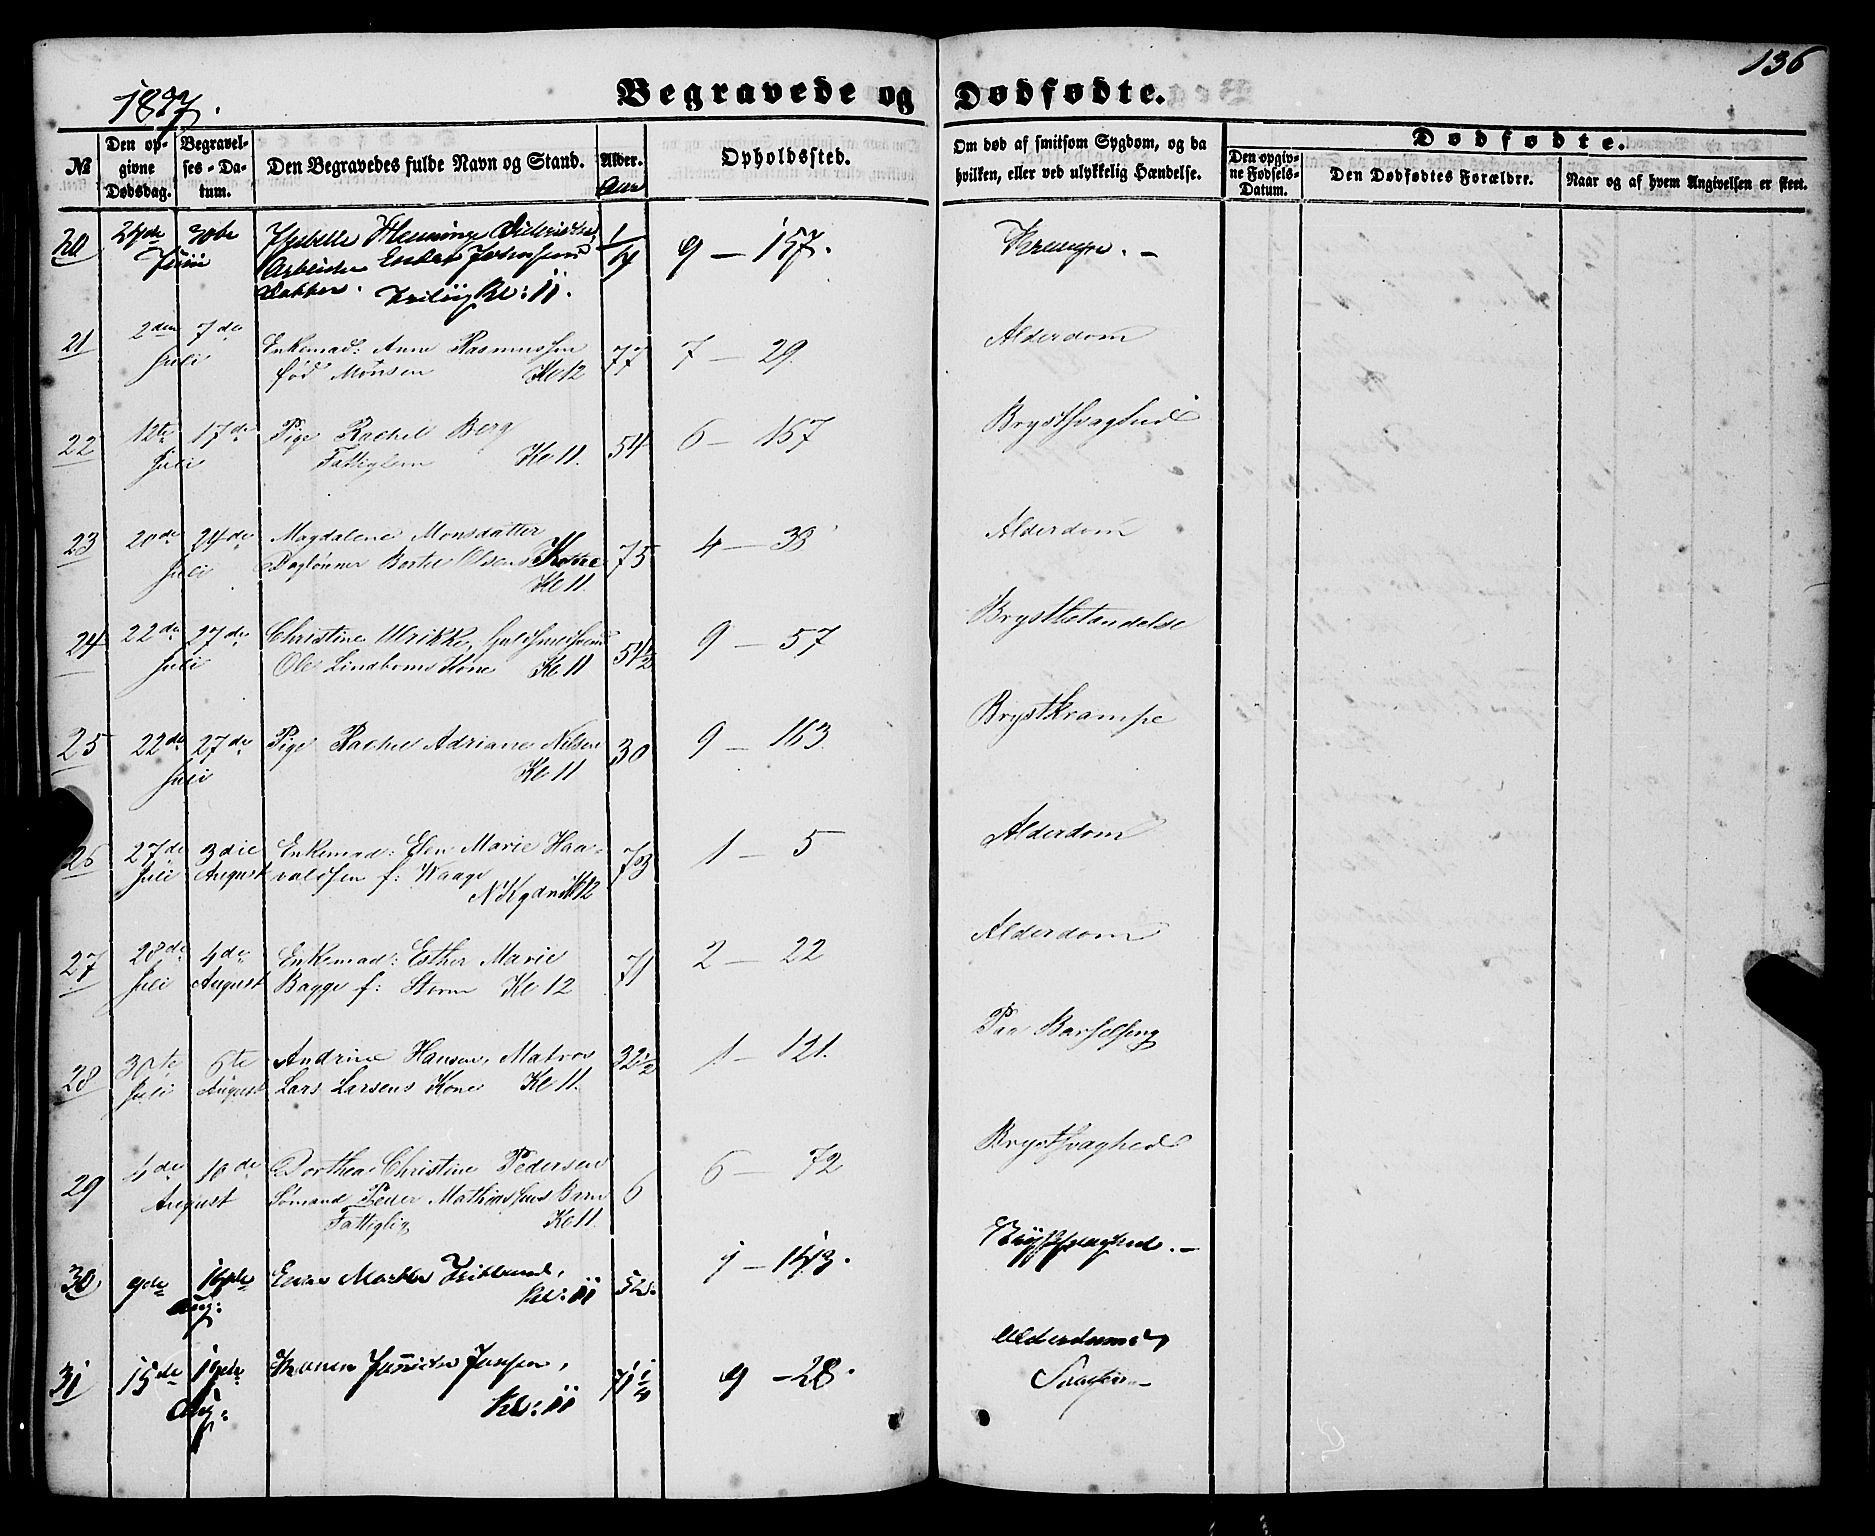 136
1877.
Begravede og Dødfødte.
№
Den opgivne Dødsdag.
Begravelses-Datum.
Den Begravedes fulde Navn og Stand.
Alder.
Aar
Opholdssted.
Om død af smitsom Sygdom, og da hvilken, eller ved ulykkelig Hændelse.
Dødfødte.
Den opgivne Fødsels-Datum.
Den Dødfødtes Forældre.
Naar og af hvem Angivelsen er skeet.
20 30te 1/4 9 — 157.
Juni Arbeider
Datter. Kl: 11.
21 2den 7de Enkemad: Anne Rasmussen 77 7 — 29. Alderdom
Juli fød Monsen Kl 12
22 12te 17de Pige Rachel Berg 54 6 — 157 Brystsvaghed
Juli Fattiglem Kl 11.
23 20de 24de Magdalene Monsdatter 75 4 — 38 Alderdom
Juli Daglønner Bertel Olsens Kone
Kl 11.
24 22de 27de Christine Ulrikke, 51 1/2 9 — 57 Brystbetændelse
Juli Ole Lindboms Kone Kl 11
25 22de 27de Pige Rachel Adriane Nilsen 30 9 — 163. Brystkrampe
Juli Kl 11
26 27de 3die Enkemad: Elen Marie Haa- 73 1 — 5 Alderdom
Juli August valdsen f: Kaage
Kl 12
27 28de 4de Enkemad: Esther Marie 71 2 — 22 Alderdom
Juli August Bagge f: Storm Kl 12
28 30te 6te Andrine Hansen, Matros 32 1/2 1 — 121. Paa Barselseng
Juli August Lars Larsens Kone Kl 11.
29 4de 10de Dorthea Christine Pedersen 6 6 — 72 Brystsvaghed
August Sømand Peder Mathiassens Barn
Fattiglig Kl 11.
30 9de 52. 1 — 143. Brystsvaghed. —
Aug: Kl: 11
31 15de Jensen, 71 1/4 9 — 28. Alderdom
Aug: Kl: 11